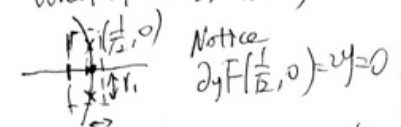 (1/√2, 0)
r₁
Notice
∂yF(1/√2, 0)=2y=0